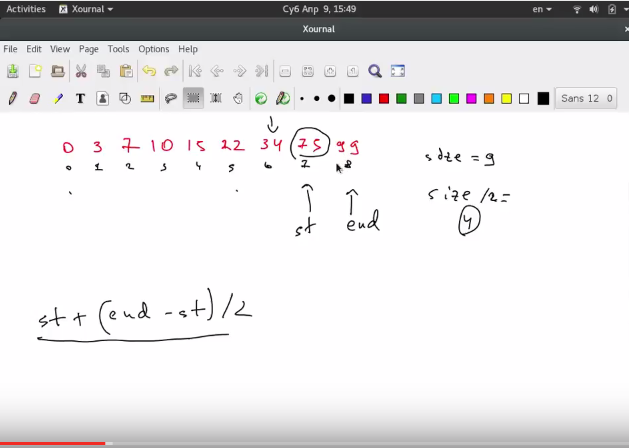 Activities Xournal ▾ Су6 Апр 9, 15:49 en ▾
Xournal
File Edit View Page Tools Options Help
Sans 12
0 3 7 10 15 22 34 75 99
0 1 2 3 4 5 6 7 8
size = 9
size /2 =
4
st end
st + (end - st) / 2